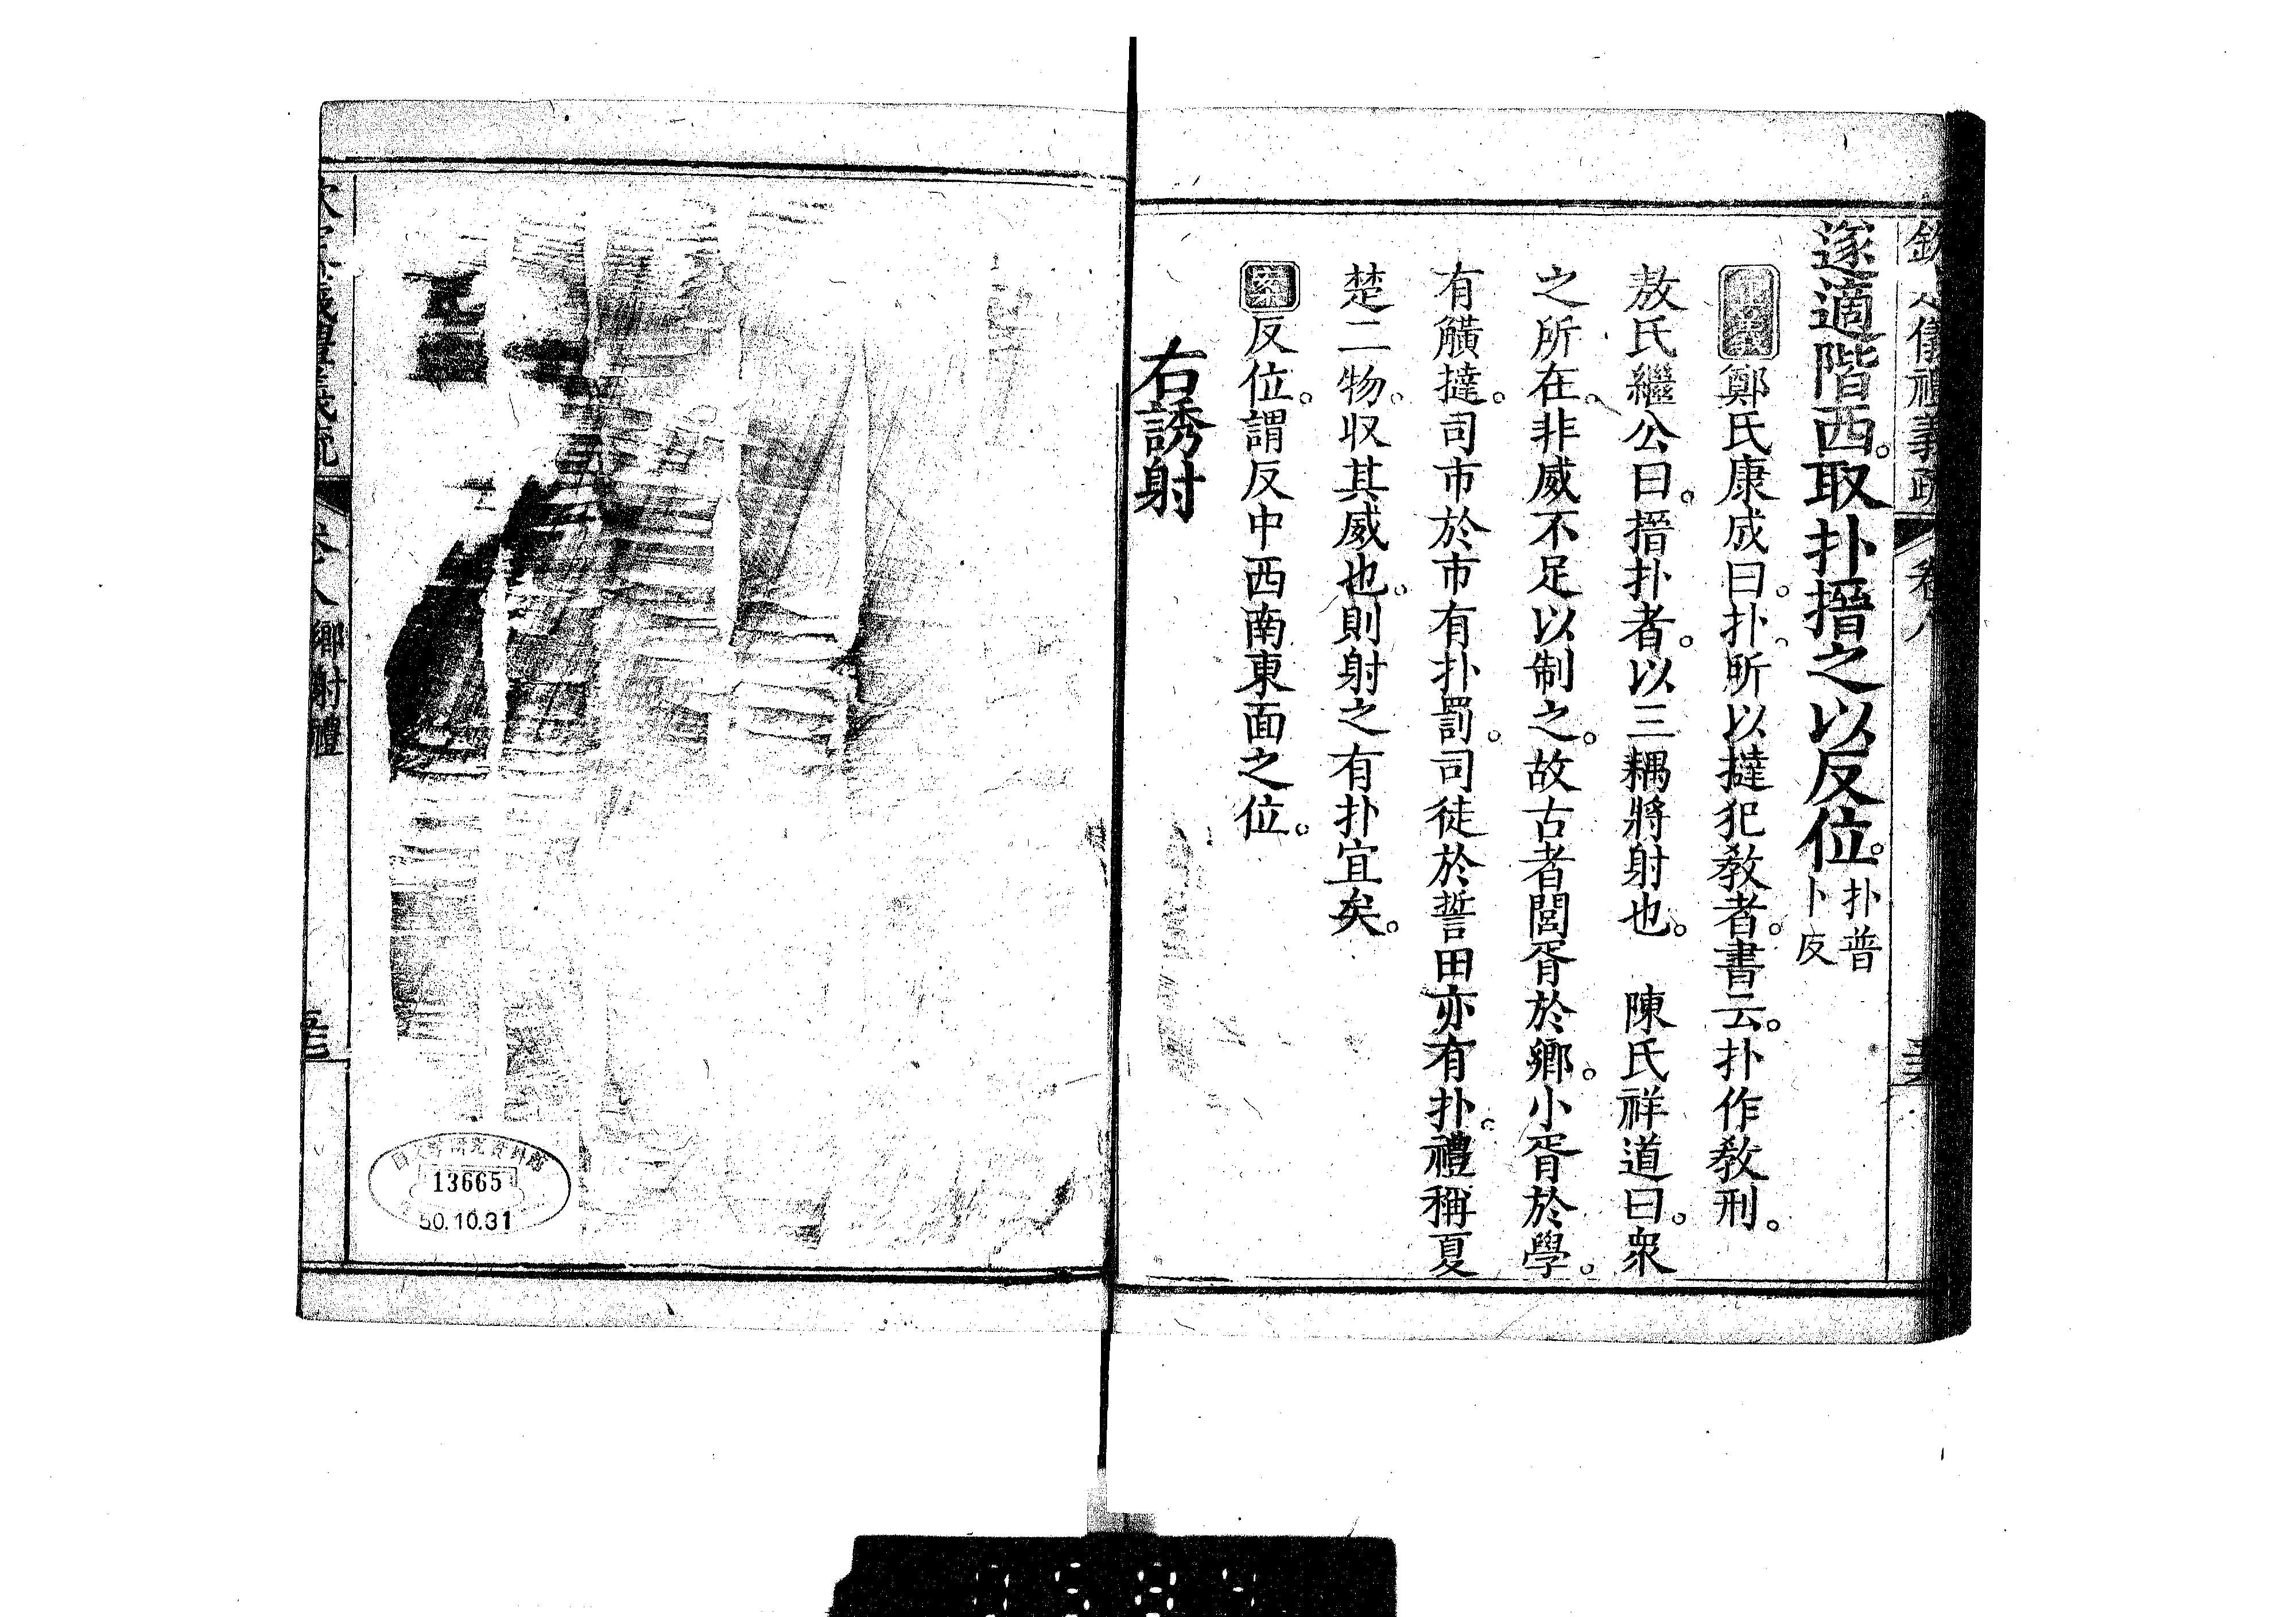 欽定儀禮義疏 卷八
遂適階西。取扑搢之以反位。扑普卜反
正義鄭氏康成曰。扑、所以撻犯教者。書云。扑作教刑。
敖氏繼公曰。搢扑者。以三耦將射也。 陳氏祥道曰。衆
之所在。非威不足以制之。故古者閭胥於鄉。小胥於學。
有觵撻。司市於市有扑罰。司徒於誓田亦有扑。禮稱夏
楚二物。収其威也。則射之有扑宜矣。
案反位。謂反中西南東面之位。
右誘射
欽定儀禮義疏 卷八鄉射禮
13665
50.10.31